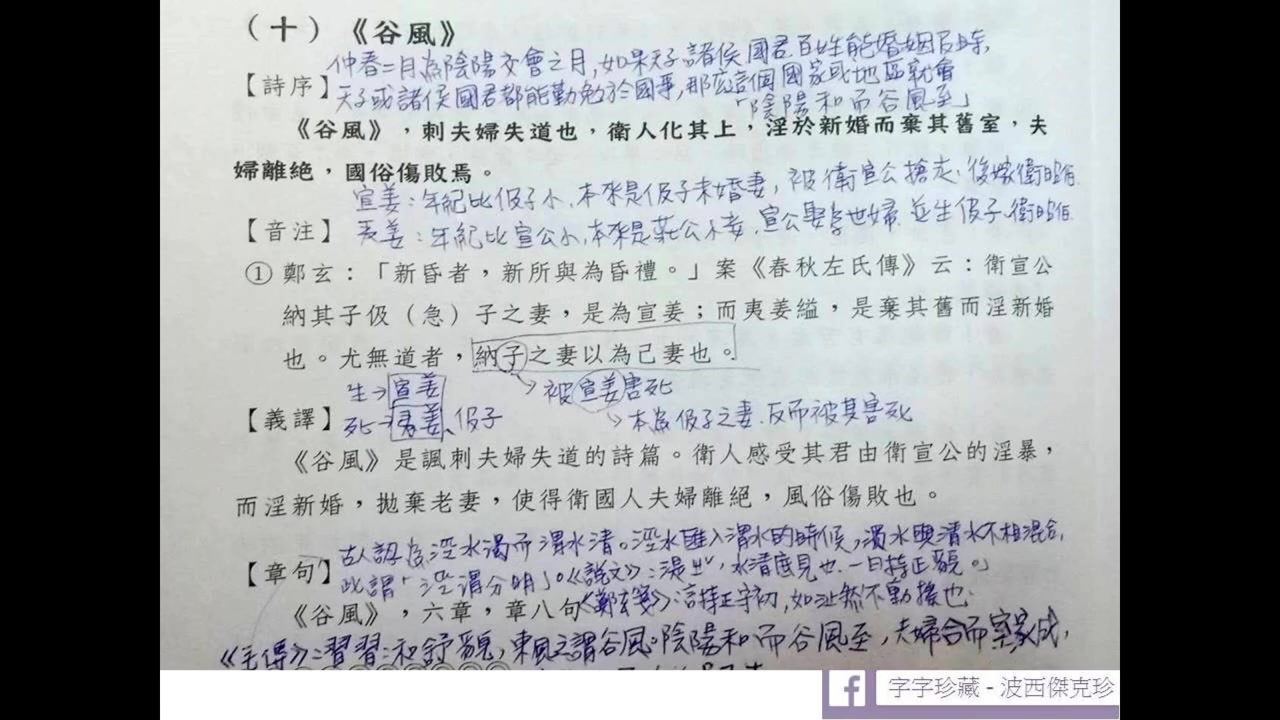 （十）《谷風》
仲春二月為陰陽交會之月，如果天子諸侯國君百姓能婚姻以時，
【詩序】天子或諸侯國君都能勤勉於國事，那麼這個國家或地區就會
「陰陽和而谷風至」
《谷風》，刺夫婦失道也，衛人化其上，淫於新婚而棄其舊室，夫
婦離絕，國俗傷敗焉。
宣姜：年紀比伋子小，本來是伋子未婚妻，被衛宣公搶走，後嫁衛昭伯
【音注】夷姜：年紀比宣公小，本來是莊公小妾，宣公娶庶母，並生伋子、衛昭伯
①鄭玄：「新昏者，新所與為昏禮。」案《春秋左氏傳》云：衛宣公
納其子伋（急）子之妻，是為宣姜；而夷姜縊，是棄其舊而淫新婚
也。尤無道者，納子之妻以為己妻也。
生→宣姜 被宣姜害死
【義譯】死→夷姜、伋子 本為伋子之妻，反而被其害死
《谷風》是諷刺夫婦失道的詩篇。衛人感受其君由衛宣公的淫暴，
而淫新婚，拋棄老妻，使得衛國人夫婦離絕，風俗傷敗也。
古人認為涇水濁而渭水清。涇水匯入渭水的時候，濁水與清水不相混合，
【章句】此謂「涇渭分明」。《說文》：湜，水清底見也，一曰持正貌。」
《谷風》，六章，章八句《鄭玄箋》：湜持正守初，如沚然不動搖也。
《毛傳》：習習：和舒貌，東風之謂谷風。陰陽和而谷風至，夫婦合而室家成，
字字珍藏 - 波西傑克珍